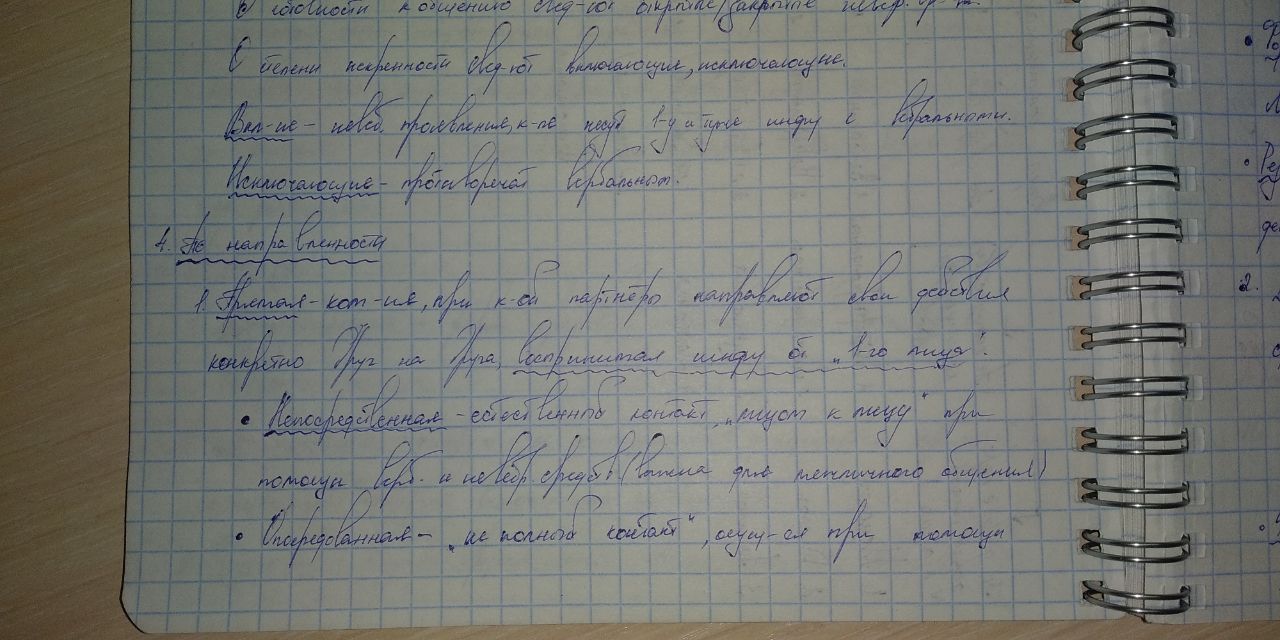 готовности к общению свед-ют открытые/закрытые
С степени искренности свед-ют включающие, исключающие.
Вкл-ие – невб. проявления, к-ые несут 1-у и ту же инфу с вербальными.
Исключающие – противоречат вербальным.
4. По направленности
1. Прямая – ком-ия, при к-ой партнёры направляют свои действия
конкретно друг на друга, воспринимая инфу от „1-го лица“.
• Непосредственная – естественный контакт „лицом к лицу“ при
помощи верб. и невербр. средств (важна для межличного общения)
• Опосредованная – „не полный контакт“, осущ-ся при помощи
2.